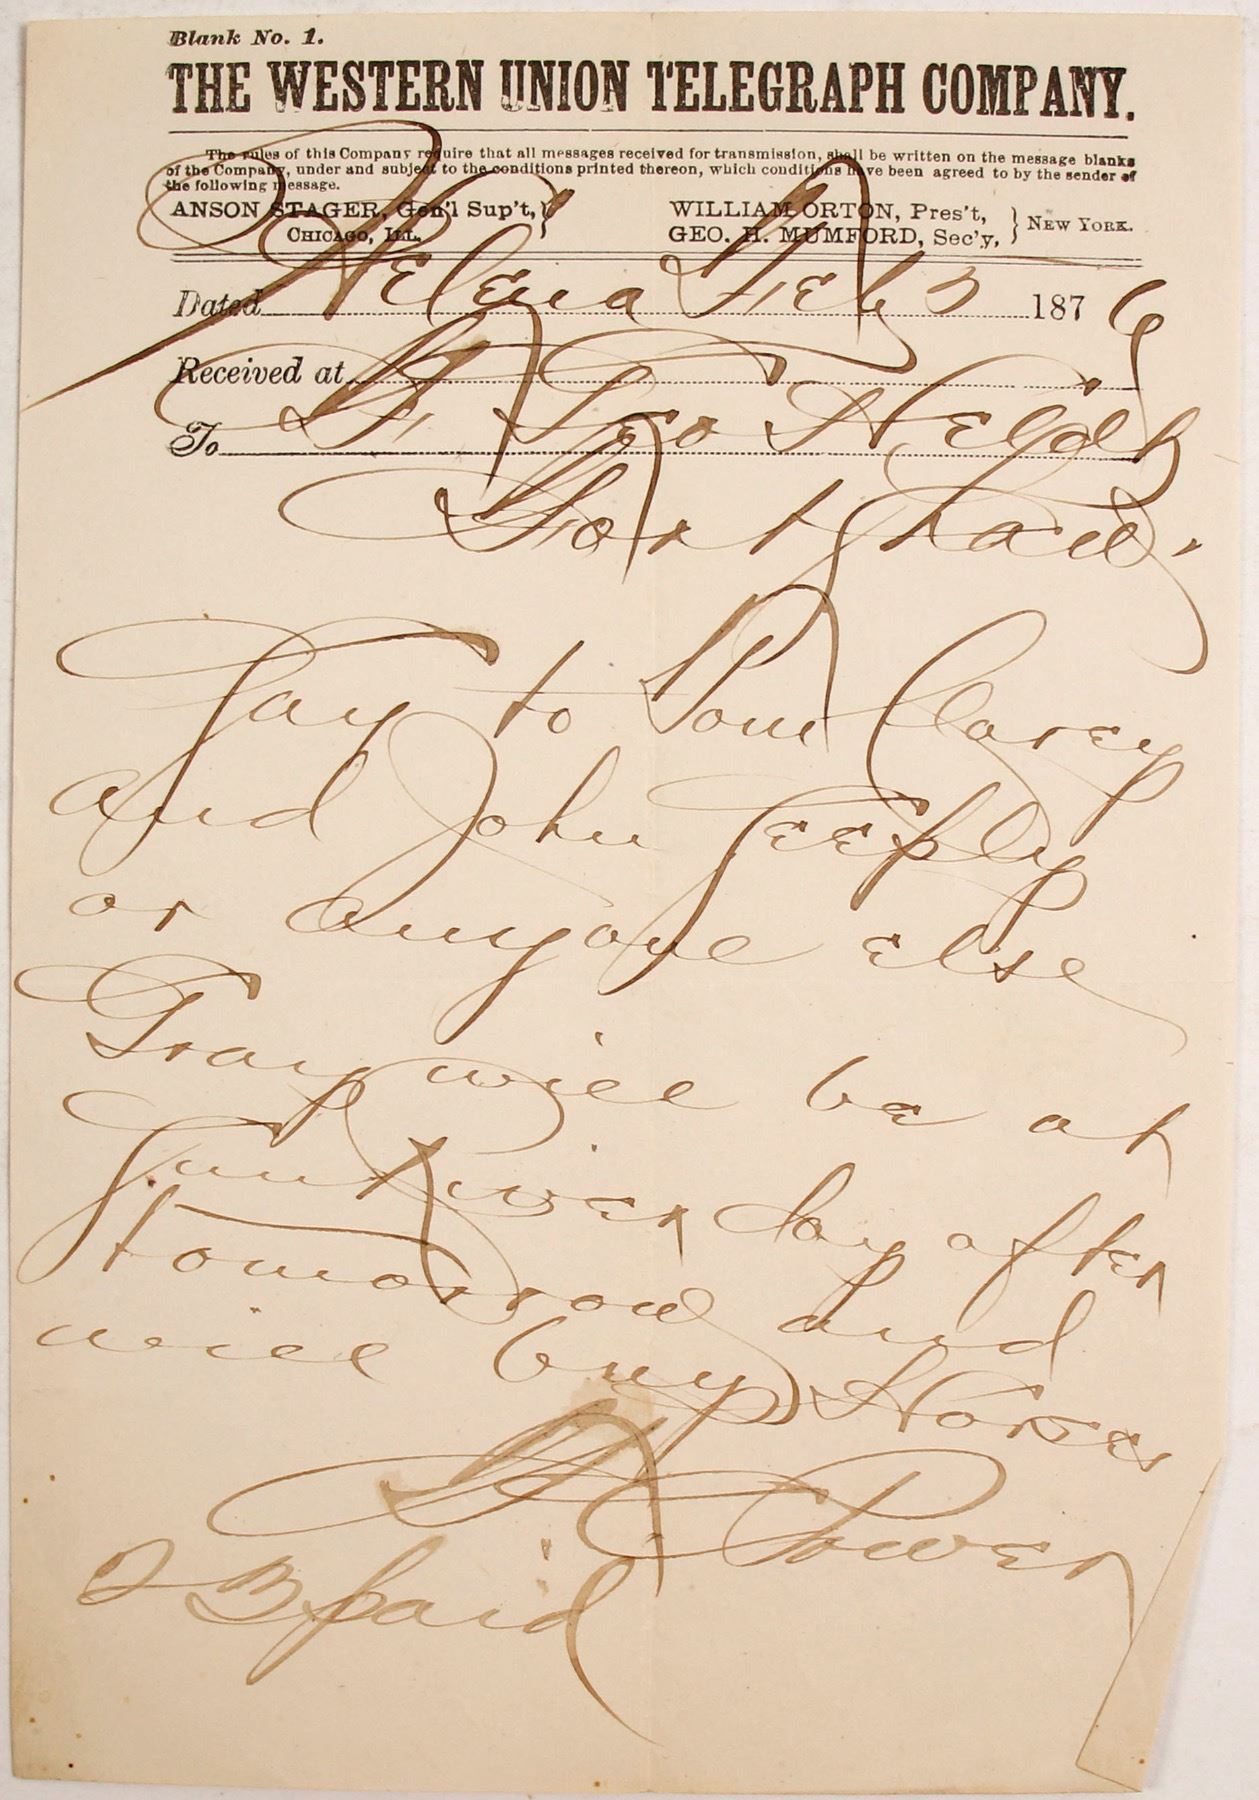 Blank No. 1.
THE WESTERN UNION TELEGRAPH COMPANY.
The rules of this Company require that all messages received for transmission, shall be written on the message blanks
of the Company, under and subject to the conditions printed thereon, which conditions have been agreed to by the sender of
the following message.
ANSON STAGER, Gen'l Sup't, } WILLIAM ORTON, Pres't, } NEW YORK.
CHICAGO, ILL. GEO. H. MUMFORD, Sec'y,
Dated Helena Feby 3 1876
Received at
To Geo Heldt
Fort Shaw.
Say to Tom Clarey
and John
or anyone else
Gray will be at
Sun River day after
tomorrow and
will buy Horses
Power
23 paid